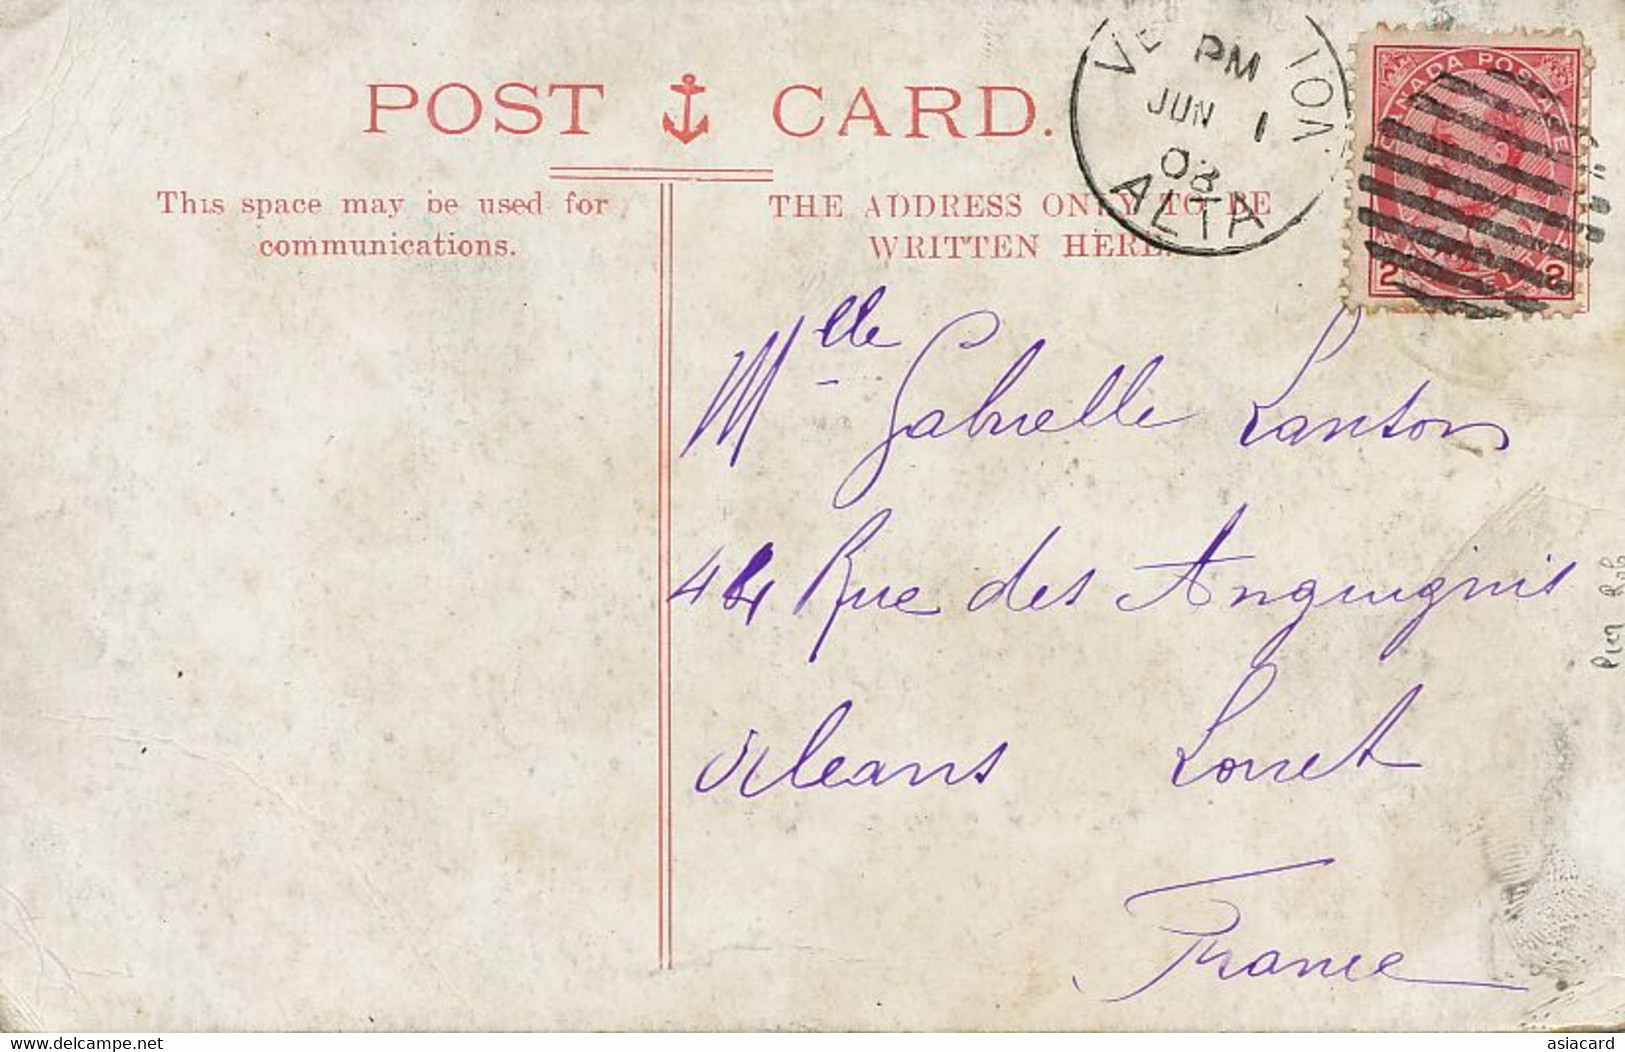 POST CARD.
This space may be used for
communications.
THE ADDRESS ONLY TO BE
WRITTEN HERE.
PM
JUN 1
08
ALTA
CANADA POSTAGE
2 2
Mlle Gabrielle Lanson
44 Rue des Anguignis
Orleans Loiret
France
Delcampe.net
asiacard